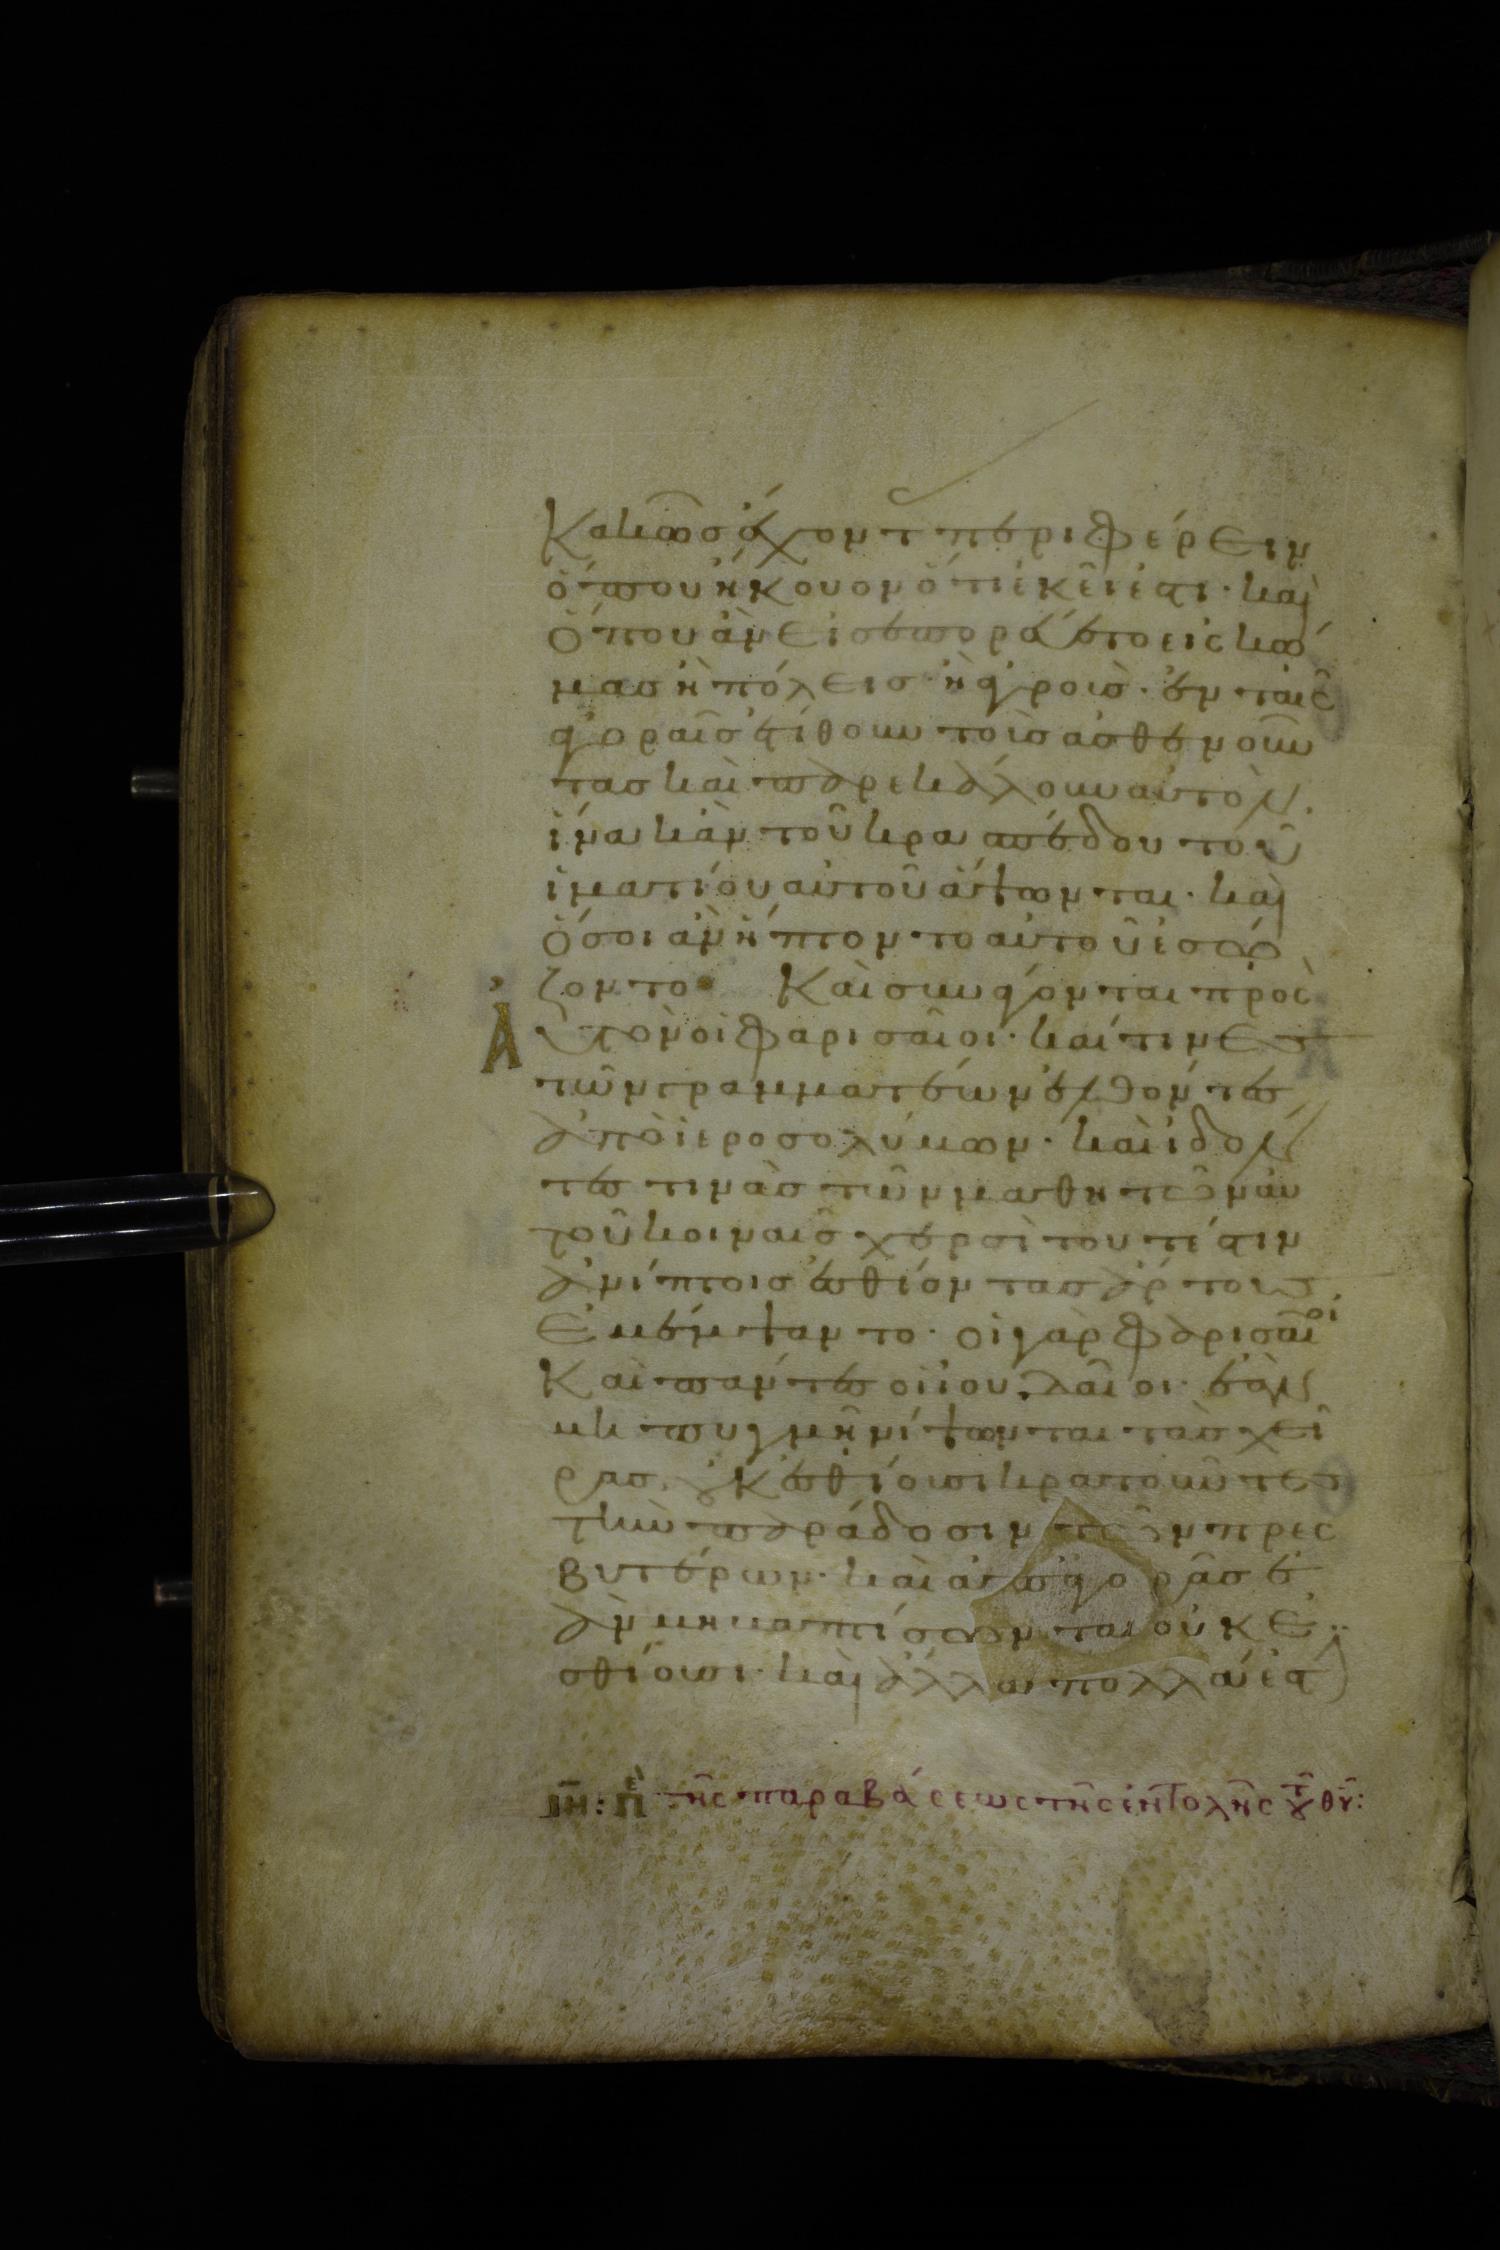 κακῶς ἔχοντ περιφέρειν
ὅπου ἤκουον ὅτι ἐκεῖ ἐστι· καὶ
ὅπου ἂν εἰσεπορεύετο εἰς κώ
μας ἢ πόλεις· ἢ ἀγροὺς· ἐν ταῖς
ἀγοραῖς ἐτίθουν τοὺς ἀσθενοῦν
τας καὶ παρεκάλουν αὐτὸν·
ἵνα κὰν τοῦ κρασπέδου τοῦ
ἱματίου αὐτοῦ ἅψωνται· καὶ
ὅσοι ἂν ἥπτοντο αὐτοῦ ἐσώ
ζοντο Καὶ συνάγονται πρὸς
αὐτὸν οἱ φαρισαῖοι· καί τινες
τῶν γραμματέων ἐλθόντες
ἀπὸ ἱεροσολύμων· καὶ ἰδόν
τες τινὰς τῶν μαθητῶν αὐ
τοῦ κοιναῖς χερσὶ τουτέστιν
ἀνίπτοις ἐσθίοντας ἄρτους
ἐμέμψαντο· οἱ γὰρ φαρισαῖοι
Καὶ πάντες οἱ ἰουδαῖοι· ἐὰν
μὴ πυγμῆ νίψωνται τὰς χεῖ
ρας, οὐκ ἐσθίουσι κρατοῦντες
τὴν παράδοσιν τῶν πρεσ
βυτέρων· καὶ ἀπὸ ἀγορᾶς ἐ
ὰν μὴ βαπτίσωνται οὐκ ἐ
σθίουσι· καὶ ἄλλα πολλά ἐστ
ιη: πε τῆς παραβάσεως τῆς ἐντολῆς τοῦ θυ: